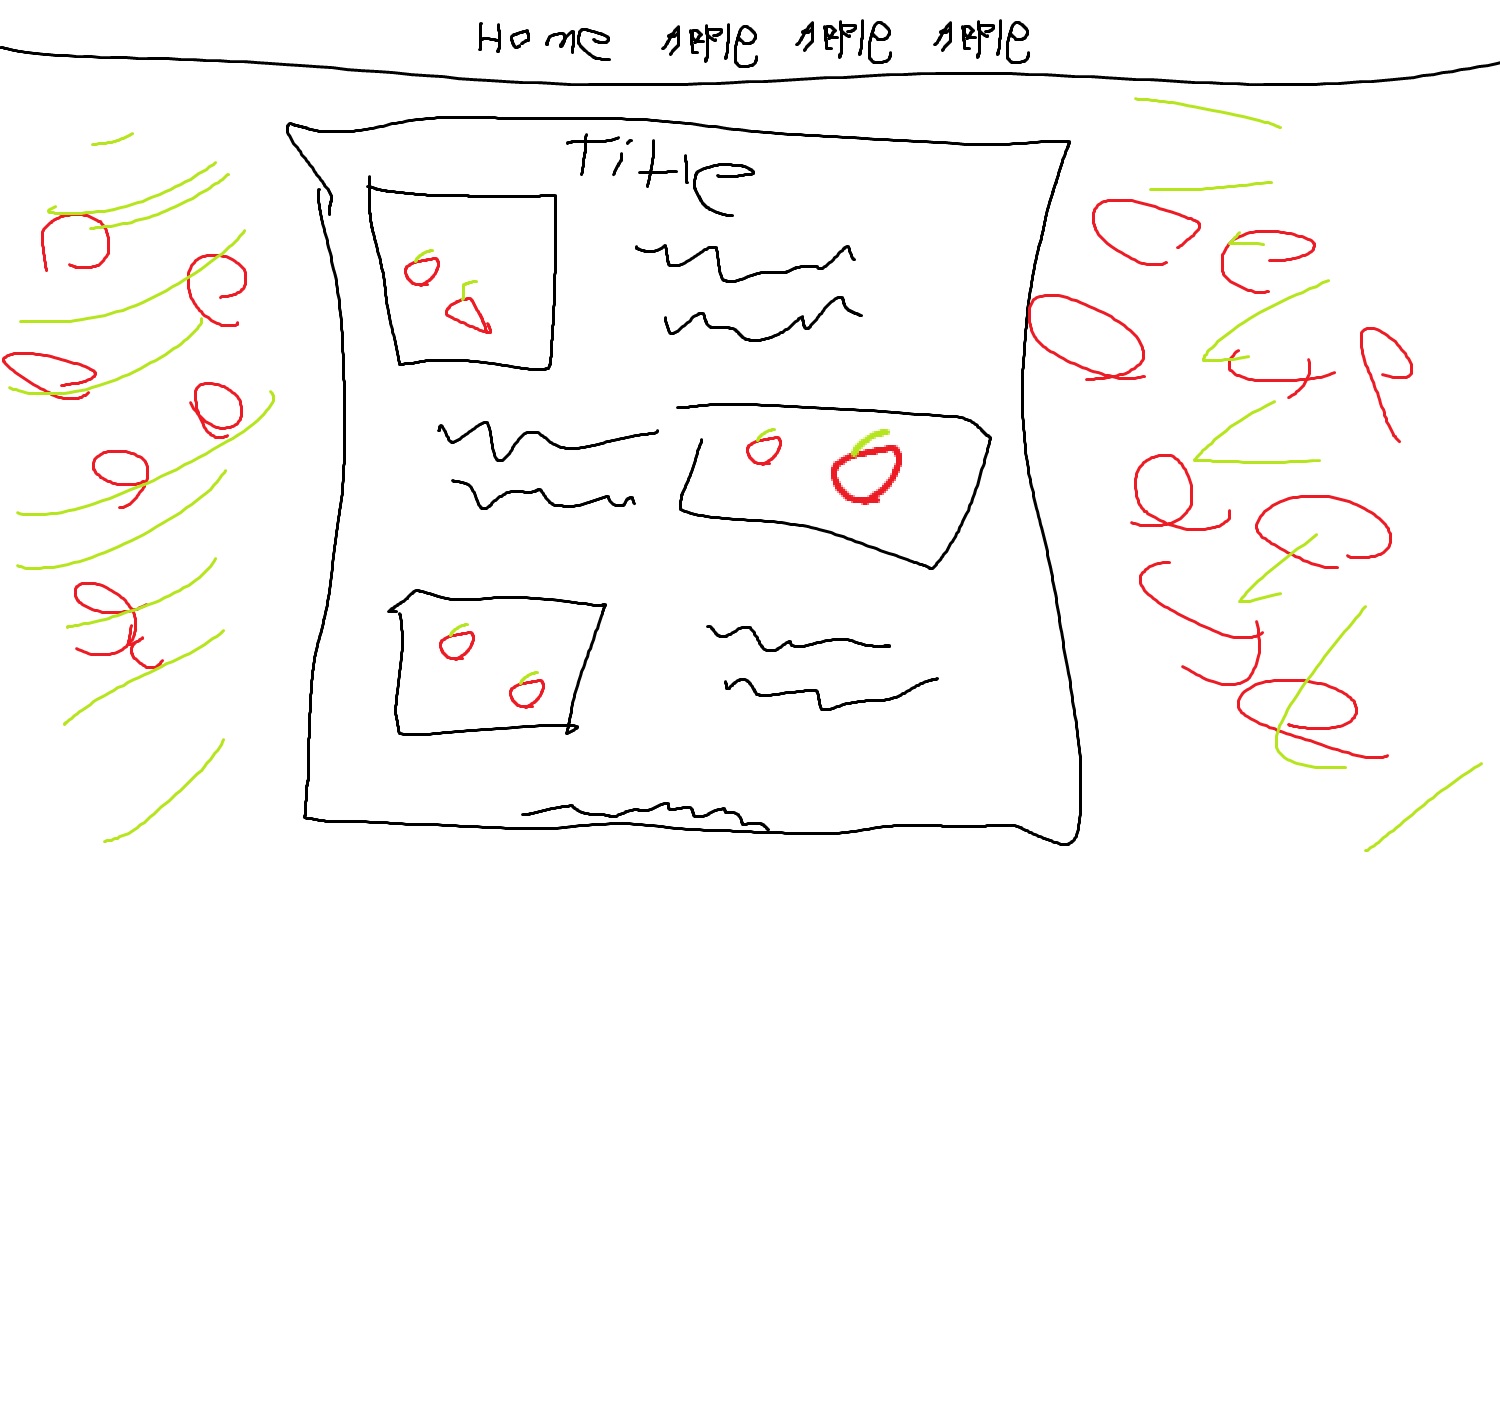 Home APPle APPle APPle
Title